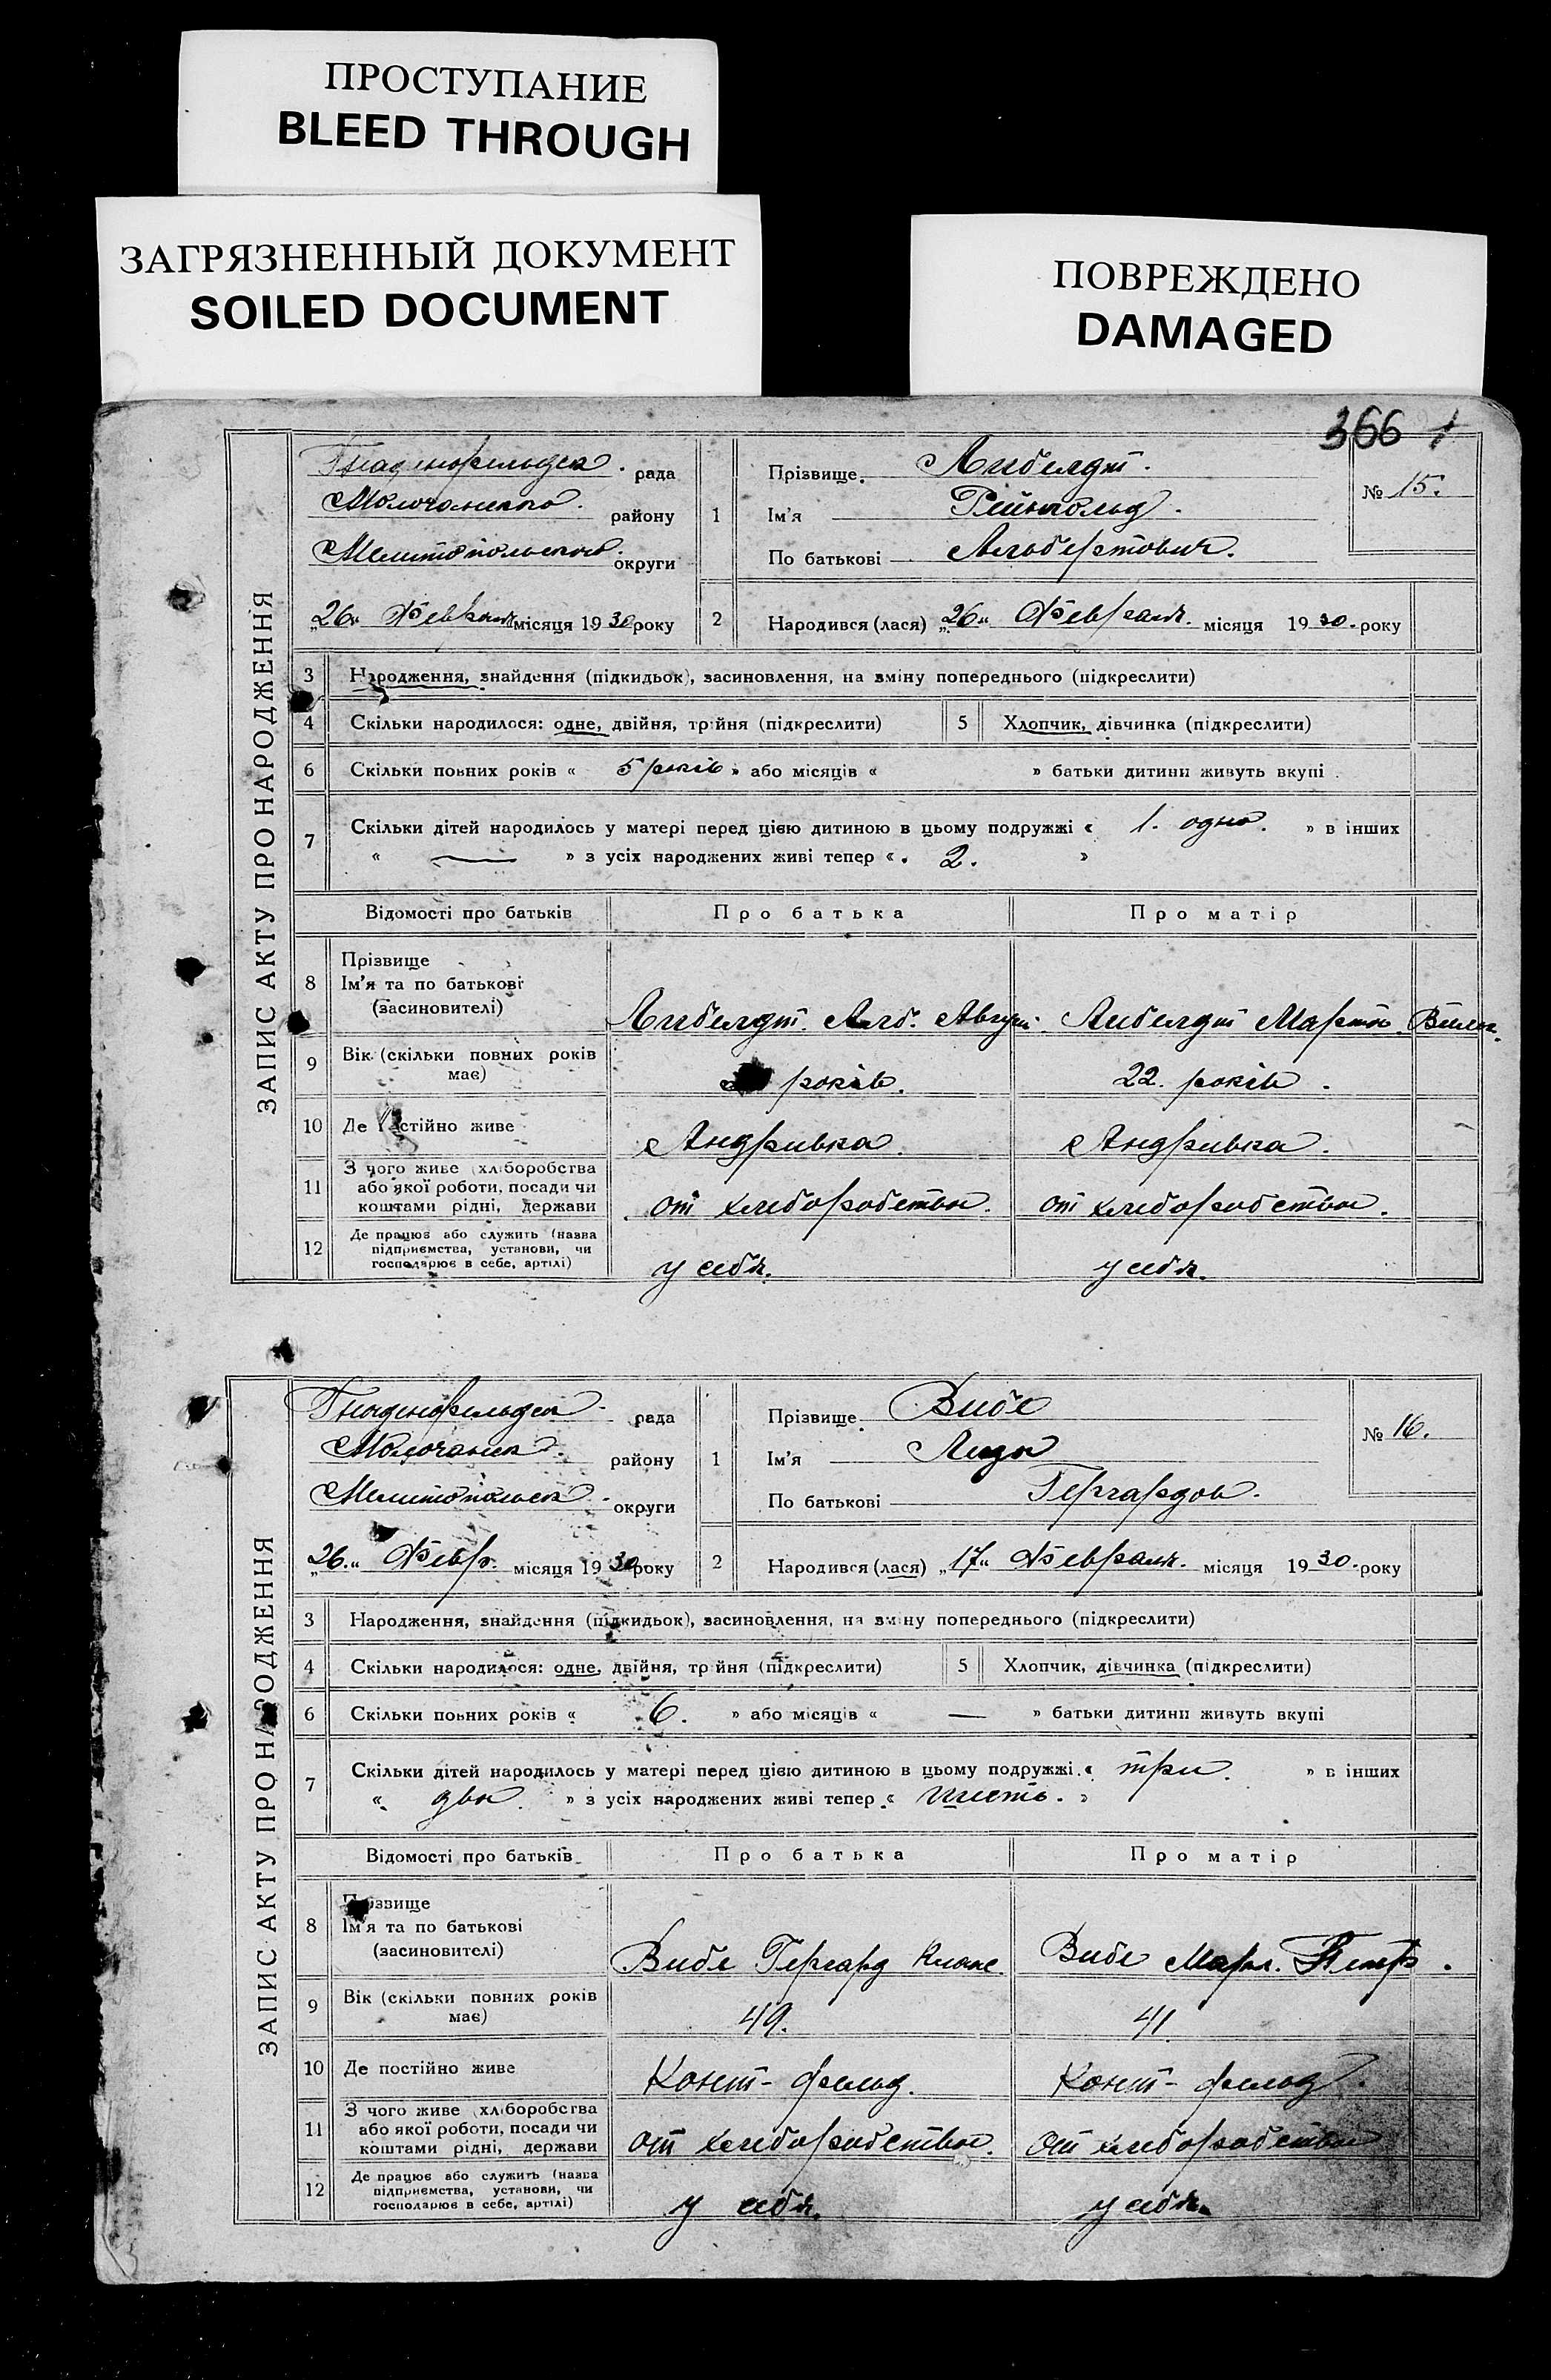 ПРОСТУПАНИЕ
BLEED THROUGH
ЗАГРЯЗНЕННЫЙ ДОКУМЕНТ
SOILED DOCUMENT
ПОВРЕЖДЕНО
DAMAGED
366 1
ЗАПИС АКТУ ПРО НАРОДЖЕННЯ
Гнаденфельдск. рада
Молочанского. району
Мелитопольского. округи
„26“ Февраля місяця 1930 року
1 Прізвище Либелдт.
Ім'я Рейнгольд.
По батькові Альбертович.
№ 15.
2 Народився (лася) „26“ Февраля. місяця 1930. року
3 Народження, знайдення (підкидьок), засиновлення, на зміну попереднього (підкреслити)
4 Скільки народилося: одне, двійня, трійня (підкреслити) 5 Хлопчик, дівчинка (підкреслити)
6 Скільки повних років « 5 років » або місяців « » батьки дитини живуть вкупі
7 Скільки дітей народилось у матері перед цією дитиною в цьому подружжі « 1. одно. » в інших
« — » з усіх народжених живі тепер « 2. »
Відомості про батьків Про батька Про матір
8 Прізвище
Ім'я та по батькові
(засиновителі)
Либелдт. Алб. Август. Либелдт Марта. Вильг.
9 Вік (скільки повних років має) років. 22. років.
10 Де постійно живе Андривка. Андривка.
11 З чого живе (хліборобства
або якої роботи, посади чи
коштами рідні, держави
от хлеборобства. от хлеборобства.
12 Де працює або служить (назва
підприємства, установи, чи
господарює в себе, артілі)
у себя. у себя.
ЗАПИС АКТУ ПРО НАРОДЖЕННЯ
Гнаденфельдск. рада
Молочанск. району
Мелитопольск. округи
„26.“ Февр. місяця 1930 року
1 Прізвище Вибе
Ім'я Лида
По батькові Гергардов.
№ 16.
2 Народився (лася) „17“ Февраля. місяця 1930. року
3 Народження, знайдення (підкидьок), засиновлення, на зміну попереднього (підкреслити)
4 Скільки народилося: одне, двійня, трійня (підкреслити) 5 Хлопчик, дівчинка (підкреслити)
6 Скільки повних років « 6. » або місяців « — » батьки дитини живуть вкупі
7 Скільки дітей народилось у матері перед цією дитиною в цьому подружжі « три. » в інших
« два. » з усіх народжених живі тепер « шесть. »
Відомості про батьків Про батька Про матір
8 Прізвище
Ім'я та по батькові
(засиновителі)
Вибе Гергард Клаас. Вибе Мария. Петр.
9 Вік (скільки повних років має) 49. 41.
10 Де постійно живе Конт-фельд. Конт-фельд.
11 З чого живе (хліборобства
або якої роботи, посади чи
коштами рідні, держави
от хлеборобства. от хлеборобства
12 Де працює або служить (назва
підприємства, установи, чи
господарює в себе, артілі)
у себя. у себя.